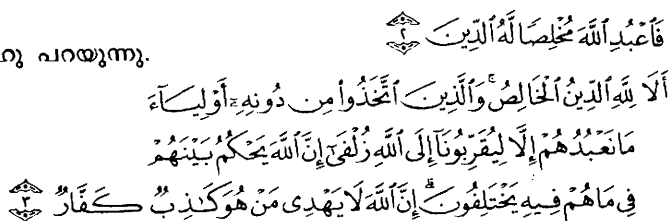 فَاعْبُدِ اللَّهَ مُخْلِصًا لَّهُ الدِّينَ ٢
പറയുന്നു.
أَلَا لِلَّهِ الدِّينُ الْخَالِصُ ۚ وَالَّذِينَ اتَّخَذُوا مِن دُونِهِ أَوْلِيَاءَ
مَا نَعْبُدُهُمْ إِلَّا لِيُقَرِّبُونَا إِلَى اللَّهِ زُلْفَىٰ إِنَّ اللَّهَ يَحْكُمُ بَيْنَهُمْ
فِي مَا هُمْ فِيهِ يَخْتَلِفُونَ ۗ إِنَّ اللَّهَ لَا يَهْدِي مَنْ هُوَ كَاذِبٌ كَفَّارٌ ٣